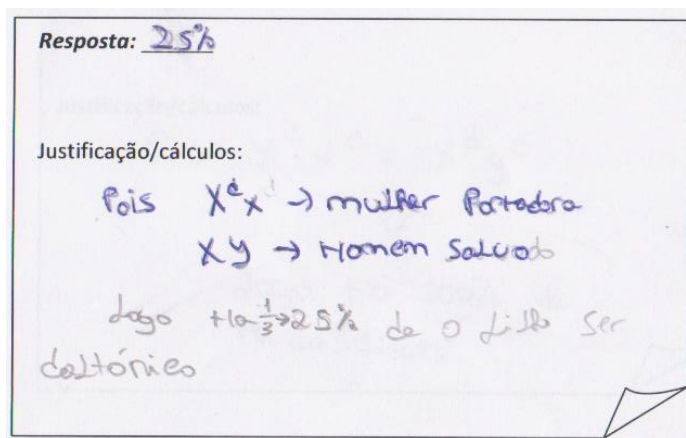 Resposta: 25%
Justificação/cálculos:
Pois X^d X → mulher Portadora
X y → Homem Salvo
Logo há 1/3 → 25% de o filho ser
daltónico